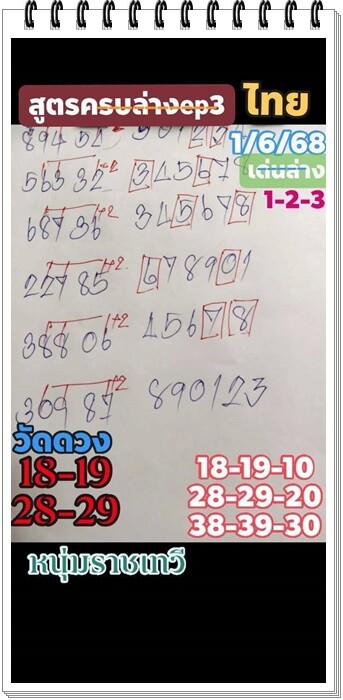 สูตรครบล่างep3 ไทย
1/6/68
894 52
563 32 +2 345678
เด่นล่าง
1-2-3
687 36 +2 345678
227 85 +2 678901
388 06 +2 45678
309 87 +2 890123
วัดดวง
18-19
28-29
18-19-10
28-29-20
38-39-30
หนุ่มราชเทวี